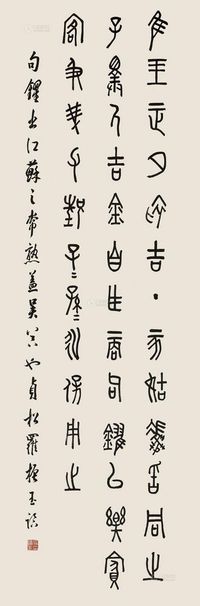 隹王正月初吉丁亥姑馮昏同之
子擇氒吉金自乍商句鑃以樂賓
客及我父兄子=孫=永保用之
句鑃出江蘇之常熟蓋吳器也貞松羅振玉